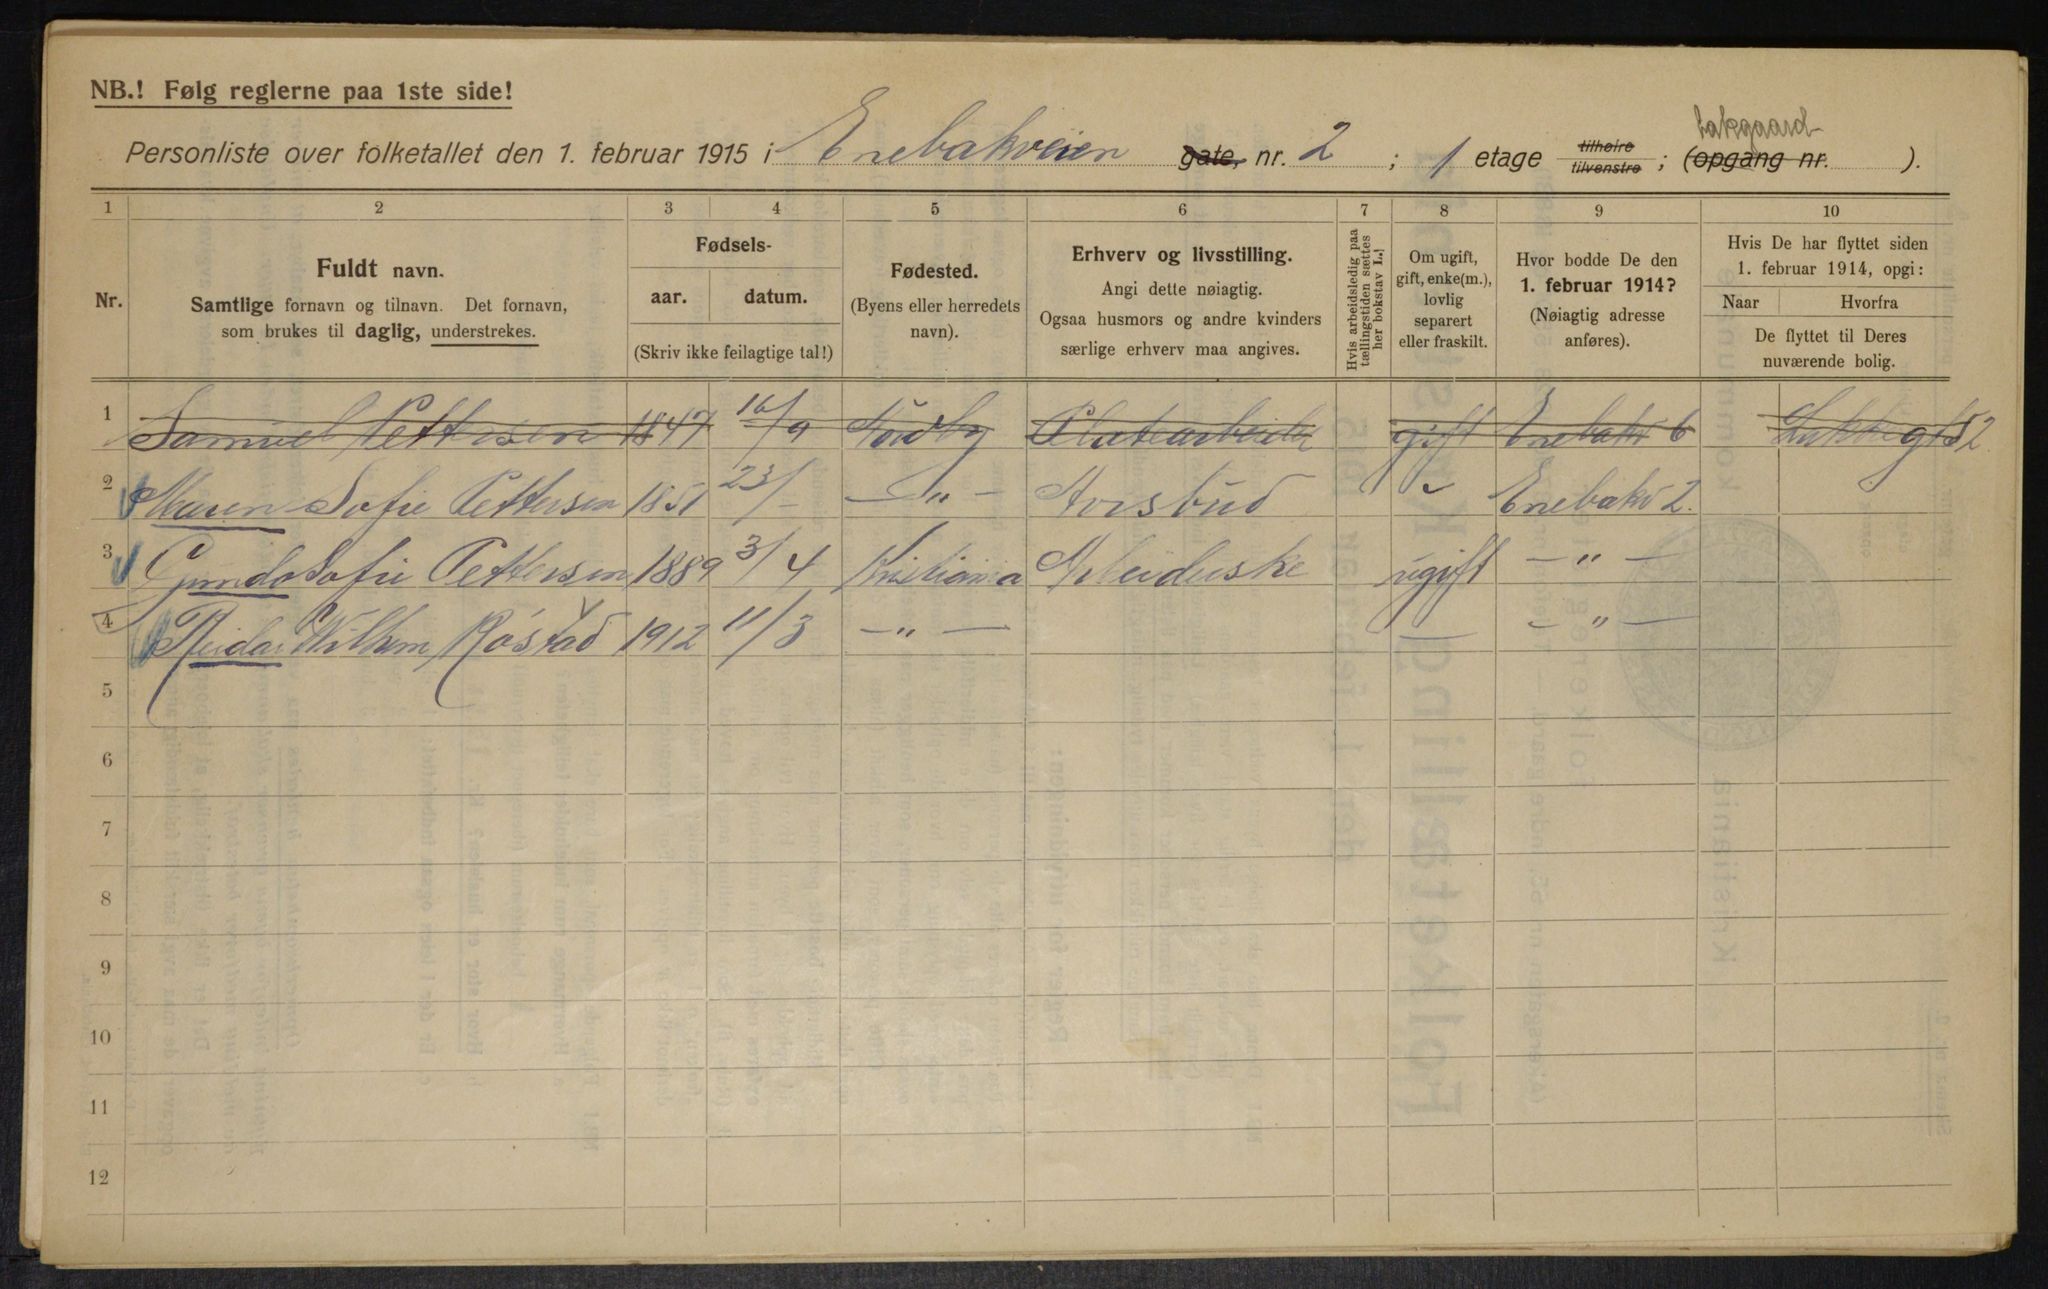 NB.! Følg reglerne paa 1ste side!
bakgaard
Personliste over folketallet den 1. februar 1915 i Enebakveien gate, nr. 2 ; 1 etage tilhøire tilvenstre ; (opgang nr. ).
1 2 3 4 5 6 7 8 9 10
Nr.
Fuldt navn.
Samtlige fornavn og tilnavn. Det fornavn,
som brukes til daglig, understrekes.
Fødsels-
aar. datum.
(Skriv ikke feilagtige tal!)
Fødested.
(Byens eller herredets
navn).
Erhverv og livsstilling.
Angi dette nøiagtig.
Ogsaa husmors og andre kvinders
særlige erhverv maa angives.
Hvis arbeidsledig paa
tællingstiden sættes
her bokstav L.!
Om ugift,
gift, enke(m.),
lovlig
separert
eller fraskilt.
Hvor bodde De den
1. februar 1914?
(Nøiagtig adresse
anføres).
Hvis De har flyttet siden
1. februar 1914, opgi:
Naar Hvorfra
De flyttet til Deres
nuværende bolig.
1 Samuel Pettersen 1847 16/9 Nordby gift Enebakv 6 52
2 Maren Sofie Pettersen 1851 23/- — " — Avisbud " Enebakv 2.
3 Gunda Sofie Pettersen 1889 3/4 Kristiania Arbeiderske ugift — " —
4 Reidar Wilhem Røstad 1912 11/3 — " — — — " —
5
6
7
8
9
10
11
12